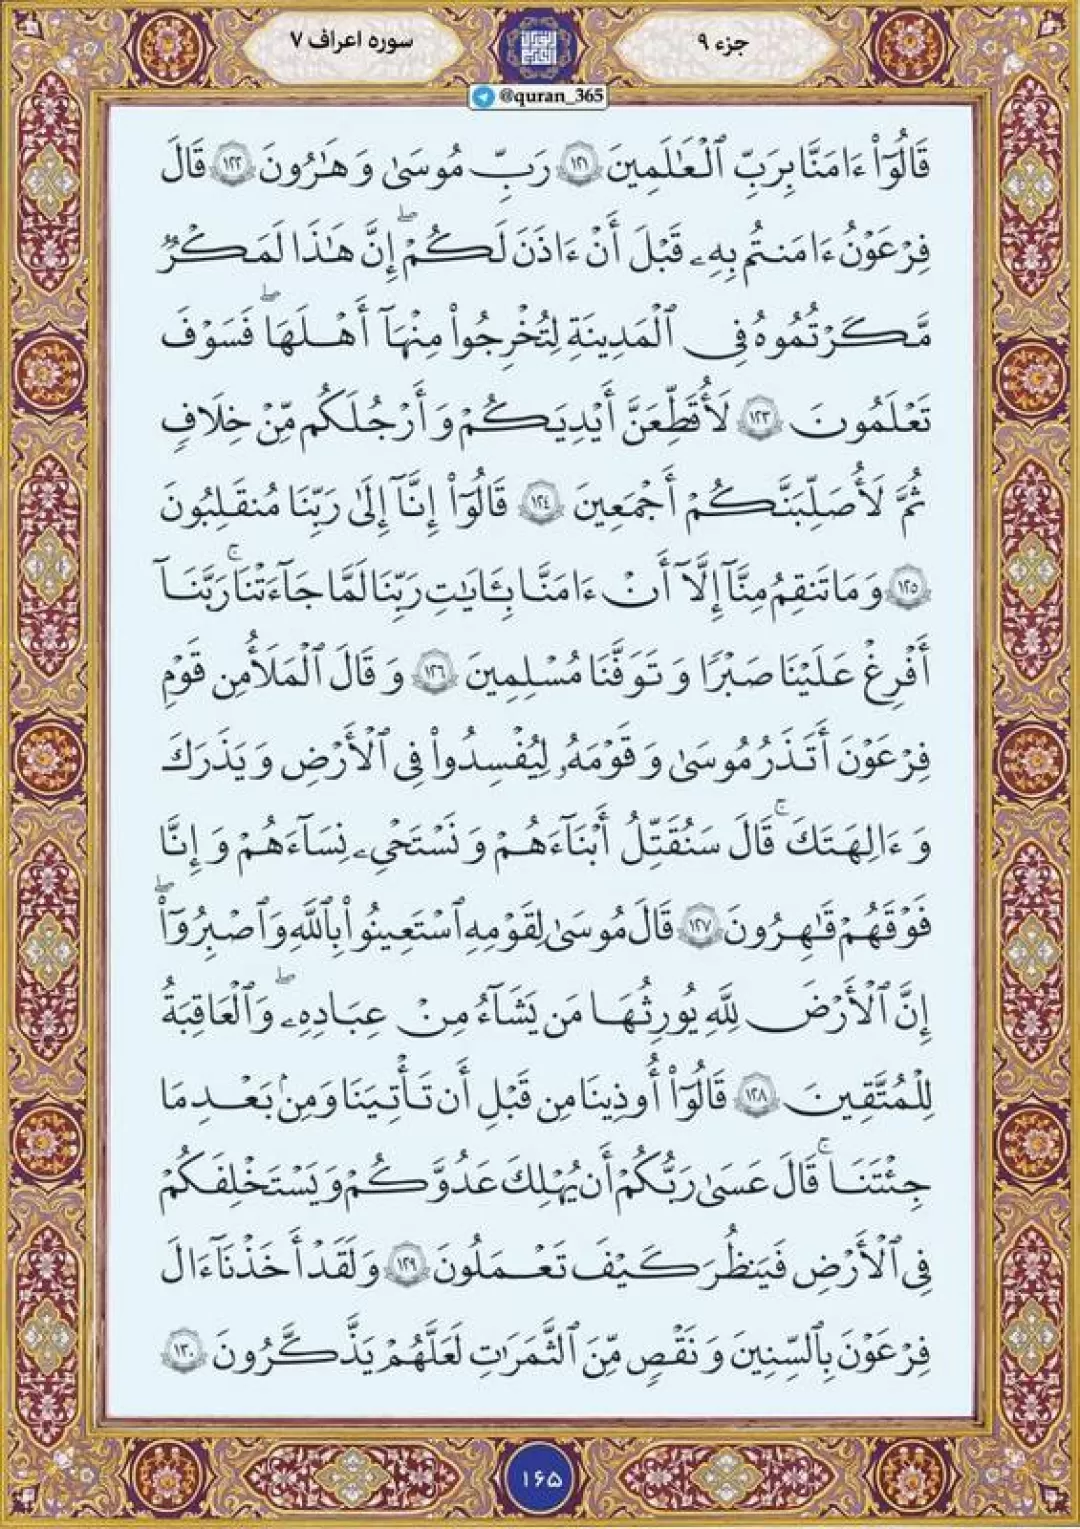 جزء ۹
سوره اعراف ۷
@quran_365
قَالُوٓا۟ ءَامَنَّا بِرَبِّ ٱلْعَـٰلَمِينَ ۝١٢١ رَبِّ مُوسَىٰ وَ هَـٰرُونَ ۝١٢٢ قَالَ
فِرْعَوْنُ ءَامَنتُم بِهِۦ قَبْلَ أَنْ ءَاذَنَ لَكُمْ ۖ إِنَّ هَـٰذَا لَمَكْرٌ
مَّكَرْتُمُوهُ فِى ٱلْمَدِينَةِ لِتُخْرِجُوا۟ مِنْهَآ أَهْلَهَا ۖ فَسَوْفَ
تَعْلَمُونَ ۝١٢٣ لَأُقَطِّعَنَّ أَيْدِيَكُمْ وَ أَرْجُلَكُم مِّنْ خِلَافٍ
ثُمَّ لَأُصَلِّبَنَّكُمْ أَجْمَعِينَ ۝١٢٤ قَالُوٓا۟ إِنَّآ إِلَىٰ رَبِّنَا مُنقَلِبُونَ
۝١٢٥ وَ مَا تَنقِمُ مِنَّآ إِلَّآ أَنْ ءَامَنَّا بِـَٔايَـٰتِ رَبِّنَا لَمَّا جَآءَتْنَا ۚ رَبَّنَآ
أَفْرِغْ عَلَيْنَا صَبْرًا وَ تَوَفَّنَا مُسْلِمِينَ ۝١٢٦ وَ قَالَ ٱلْمَلَأُ مِن قَوْمِ
فِرْعَوْنَ أَتَذَرُ مُوسَىٰ وَ قَوْمَهُۥ لِيُفْسِدُوا۟ فِى ٱلْأَرْضِ وَ يَذَرَكَ
وَ ءَالِهَتَكَ ۚ قَالَ سَنُقَتِّلُ أَبْنَآءَهُمْ وَ نَسْتَحْىِۦ نِسَآءَهُمْ وَ إِنَّا
فَوْقَهُمْ قَـٰهِرُونَ ۝١٢٧ قَالَ مُوسَىٰ لِقَوْمِهِ ٱسْتَعِينُوا۟ بِٱللَّهِ وَ ٱصْبِرُوٓا۟ ۖ
إِنَّ ٱلْأَرْضَ لِلَّهِ يُورِثُهَا مَن يَشَآءُ مِنْ عِبَادِهِۦ ۖ وَ ٱلْعَاقِبَةُ
لِلْمُتَّقِينَ ۝١٢٨ قَالُوٓا۟ أُوذِينَا مِن قَبْلِ أَن تَأْتِيَنَا وَ مِنۢ بَعْدِ مَا
جِئْتَنَا ۚ قَالَ عَسَىٰ رَبُّكُمْ أَن يُهْلِكَ عَدُوَّكُمْ وَ يَسْتَخْلِفَكُمْ
فِى ٱلْأَرْضِ فَيَنظُرَ كَيْفَ تَعْمَلُونَ ۝١٢٩ وَ لَقَدْ أَخَذْنَآ ءَالَ
فِرْعَوْنَ بِٱلسِّنِينَ وَ نَقْصٍ مِّنَ ٱلثَّمَرَٰتِ لَعَلَّهُمْ يَذَّكَّرُونَ ۝١٣٠
۱۶۵